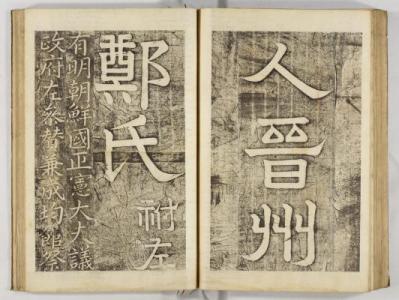 人晉州
鄭氏祔左
有明朝鮮國正憲大夫議
政府左參贊兼成均館祭